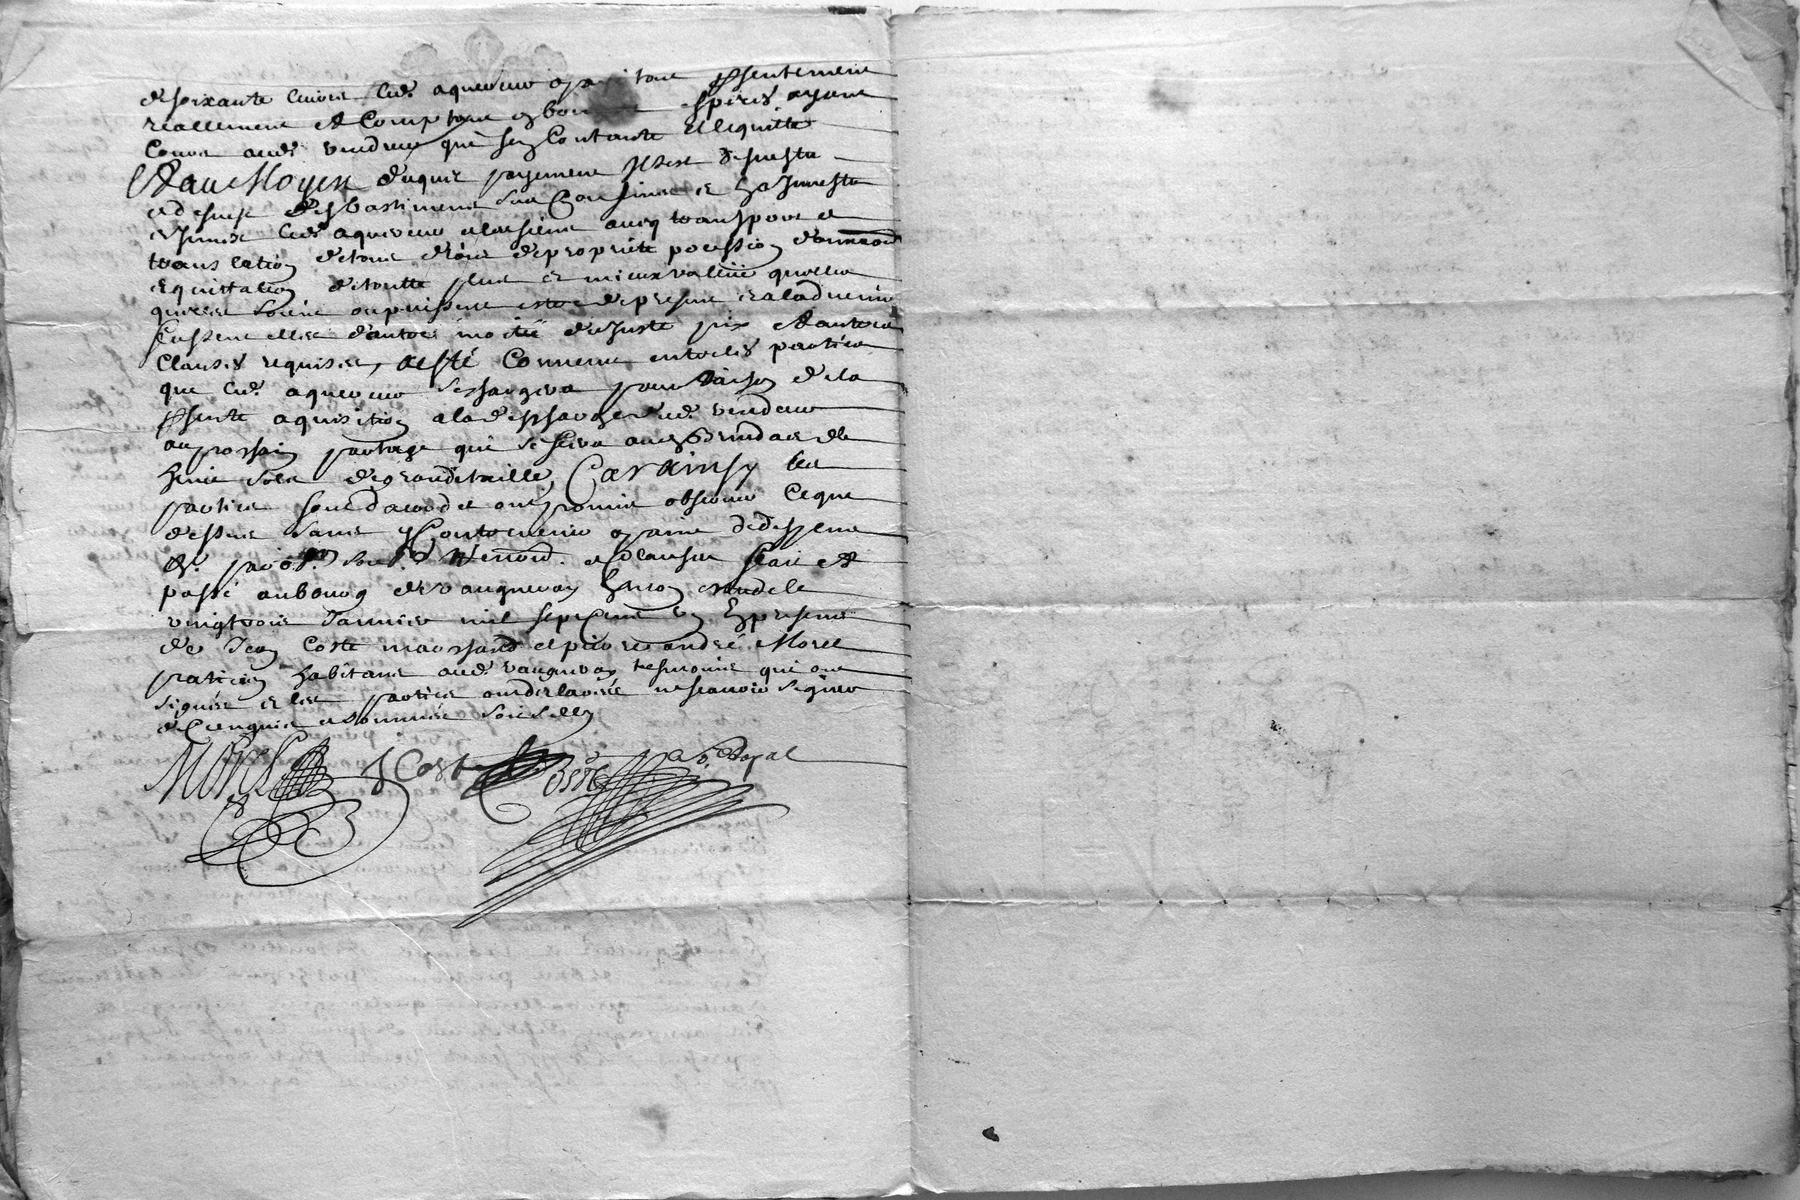 de soixante livres led. aquereur a paye tout presentement
reallement et comptant en bonnes especes ayant
cours aud. vendeur qui sen contante et lequitte
Et au Moyen duquel payement sest desmestu
et desmis desd bastiments sus confinés et en a Investu
et Jnmis led. aquereur et les siens avecq transport et
translation de tous droits de propriete possession
et quittation de toutte plus et mieux vallüe quelles
quelles soient ou puissent estre de present et a ladvenir
fussent elles doutre moitié du Juste prix et autres
clauses requises, a esté convenu entre les parties
que led. aquereur se chargera pour raison de la
presente aquisition a la descharge dud. vendeur
au prochain partage qui se fera
huit sols de grande taille, Car ainsy les
parties sont dacord et ont promis observer ce que
dessus sans y contrevenir a paine de despens
par foy serment renond. et clauses fait et
passé au bourg de Vaugneray
vingt trois Janvier mil sept cent un En presence
de Jean Coste marchand et pierre andré Morel
praticien habitants aud. vaugneray tesmoins qui ont
signés et les parties ont declarée ne scavoir signer
de ce enquis et sommés
Morel J Coste no.re Royal